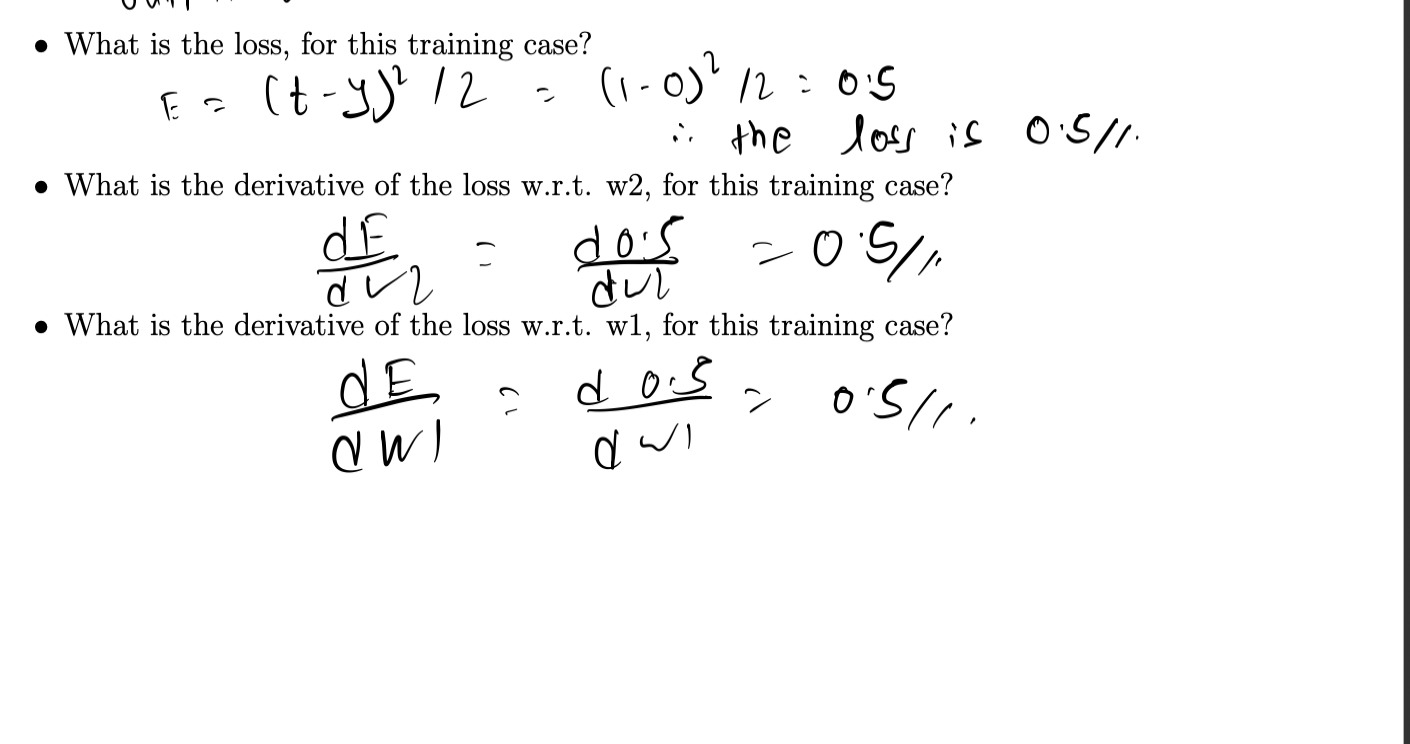 • What is the loss, for this training case?
E = (t-y)² / 2 = (1-0)² /2 = 0.5
∴ the loss is 0.5//.
• What is the derivative of the loss w.r.t. w2, for this training case?
dE/dw2 = d0.5/dw2 = 0.5//.
• What is the derivative of the loss w.r.t. w1, for this training case?
dE/dw1 = d 0.5/dw1 = 0.5//.